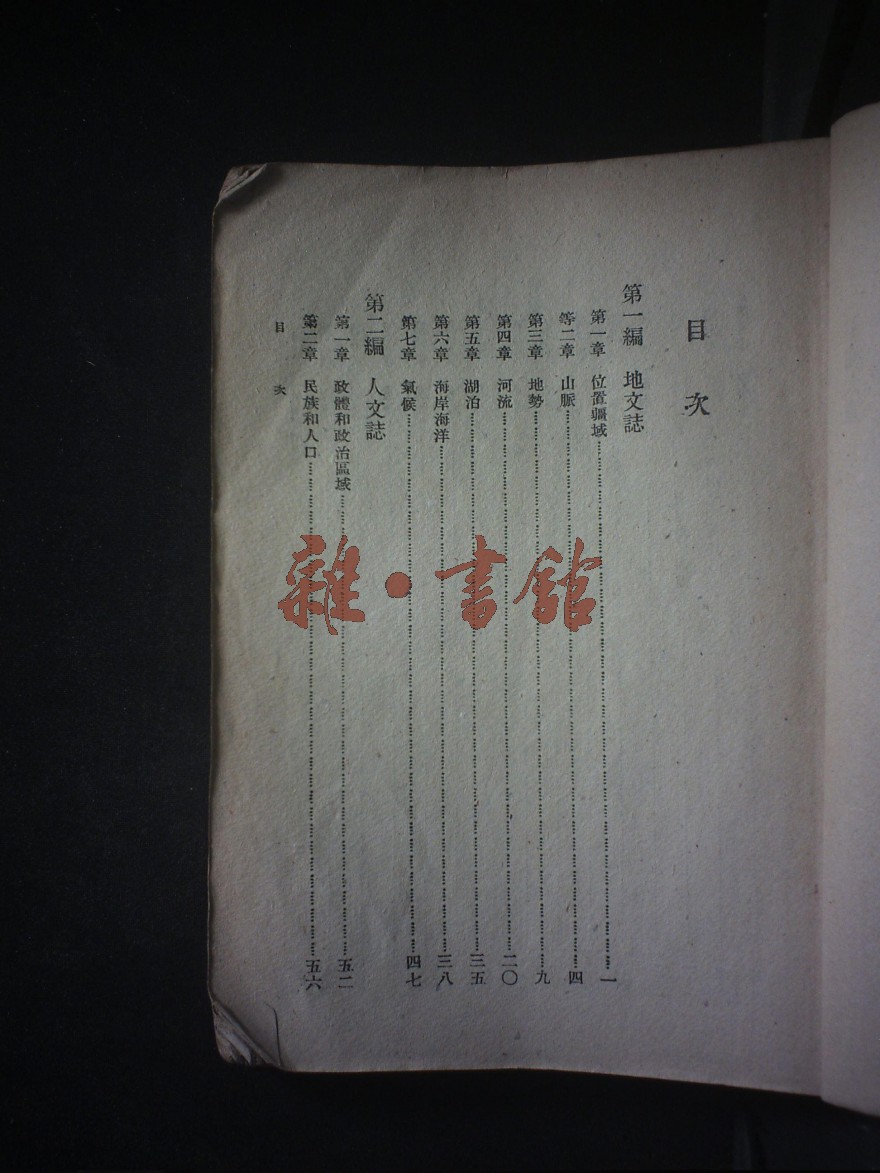 目次
第一編 地文誌
第一章 位置疆域……一
等二章 山脈……四
第三章 地勢……九
第四章 河流……二〇
第五章 湖泊……三五
第六章 海岸海洋……三八
第七章 氣候……四七
第二編 人文誌
第一章 政體和政治區域……五二
第二章 民族和人口……五六
目次
雜·書館